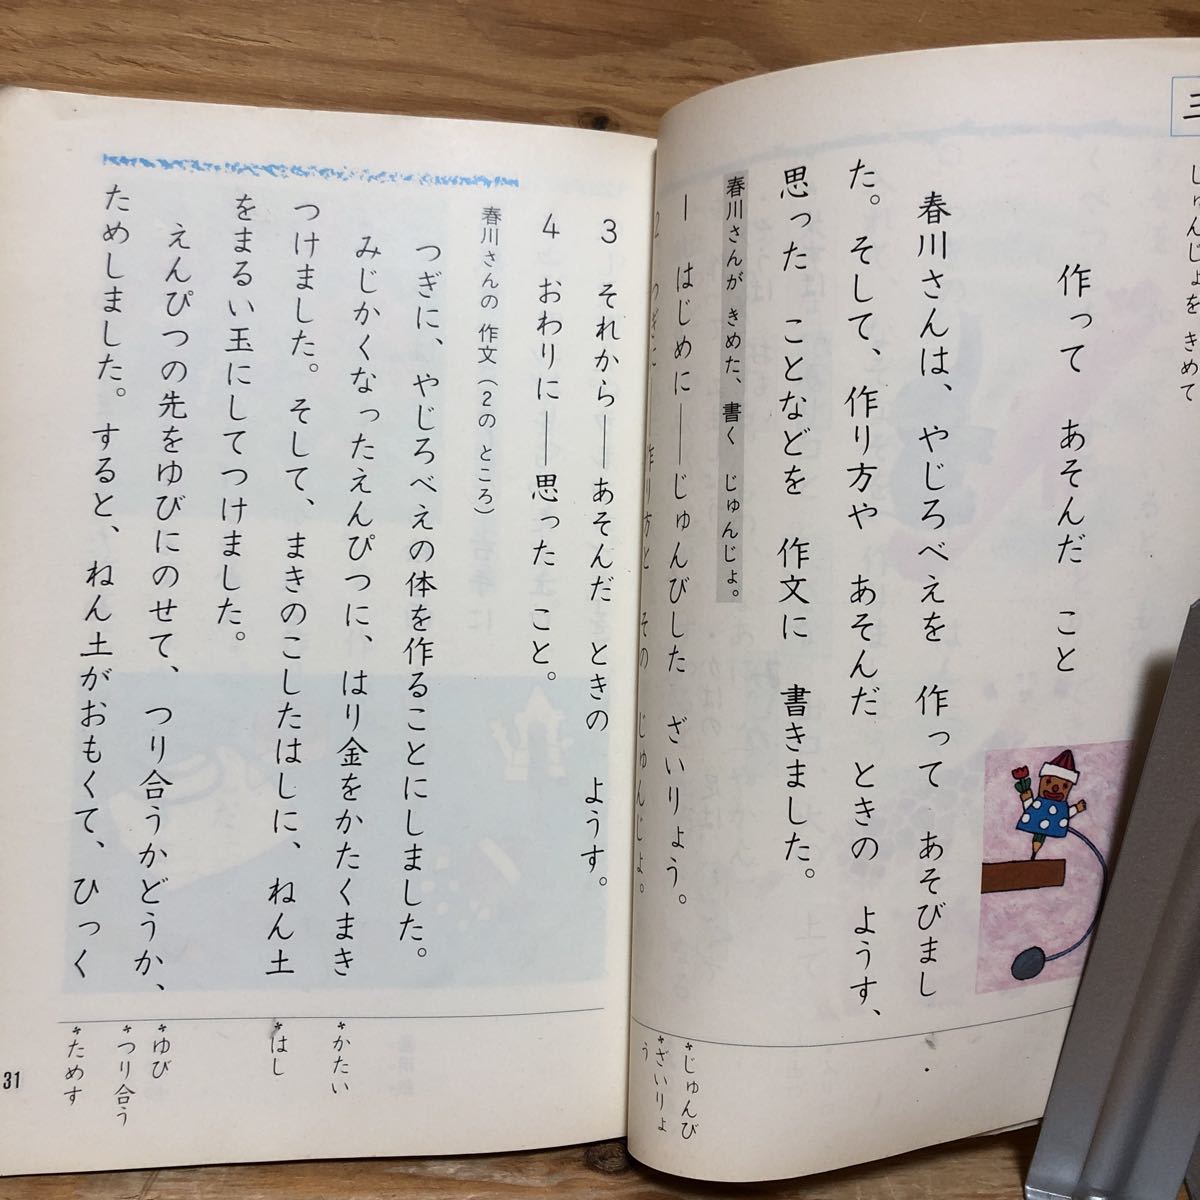 三
じゅんじょを きめて
作って あそんだ こと
春川さんは、やじろべえを 作って あそびまし
た。そして、作り方や あそんだ ときの ようす、
思った ことなどを 作文に 書きました。
春川さんが きめた、書く じゅんじょ。
1 はじめに──じゅんびした ざいりょう。
2 つぎに──作り方と その じゅんじょ。
*じゅんび
*ざいりょ
う
3 それから──あそんだ ときの ようす。
4 おわりに──思った こと。
春川さんの 作文(2の ところ)
つぎに、やじろべえの体を作ることにしました。
みじかくなったえんぴつに、はり金をかたくまき
つけました。そして、まきのこしたはしに、ねん土
をまるい玉にしてつけました。
えんぴつの先をゆびにのせて、つり合うかどうか、
ためしました。すると、ねん土がおもくて、ひっく
*かたい
*はし
*ゆび
*つり合う
*ためす
31